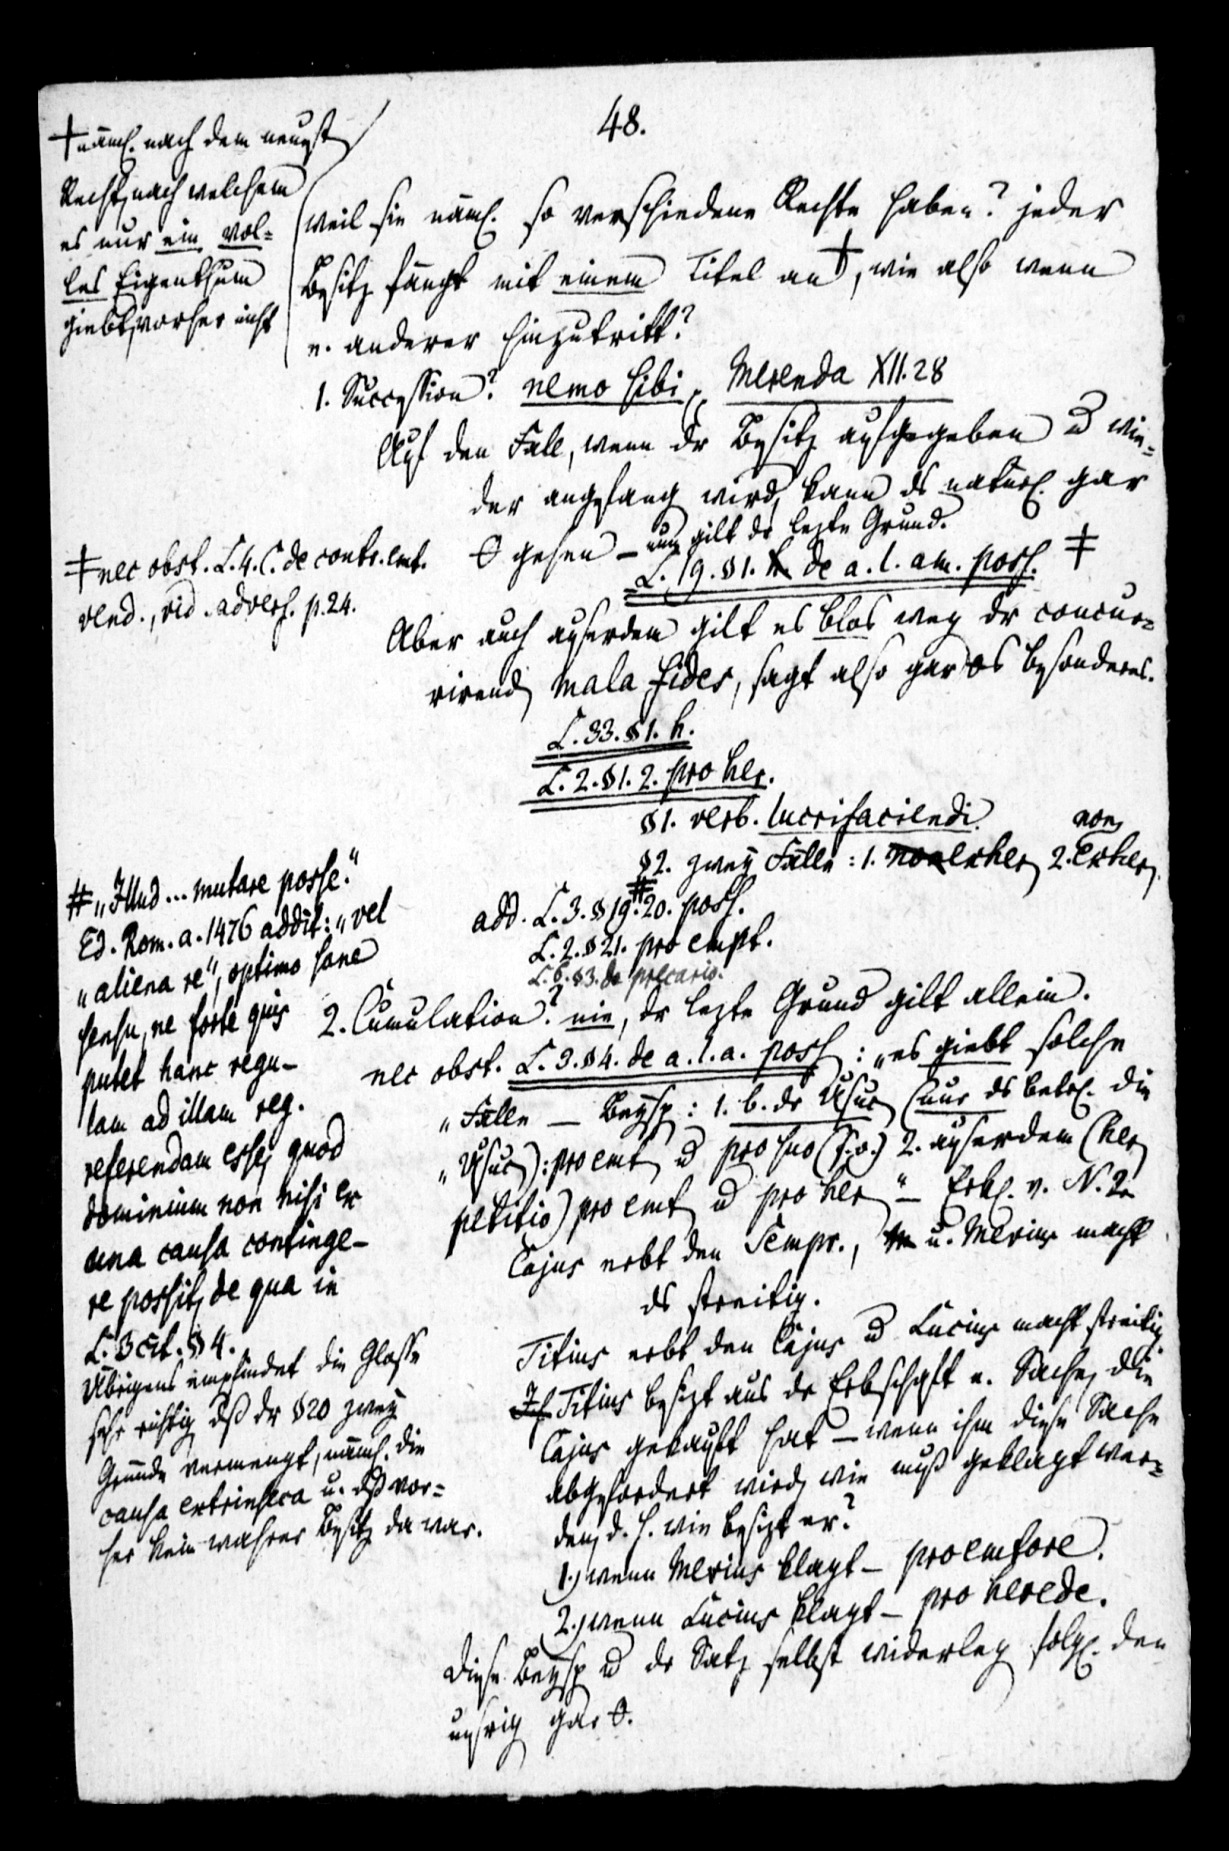 48.
† näml. nach dem neuest
Recht, nach welchem
es nur ein vol-
les Eigenthum
giebt, vorher nicht
weil sie näml. so verschiedene Rechte haben? jeder
Besitz fängt mit einem Titel an †, wie also wenn
e. anderer hinzutritt?
1. Succession? nemo sibi, Merenda XII. 28
Auf den Fall, wenn dr Besitz aufgegeben u wie-
der angefang wird, kann ds natürl. gar
O gehen — nun gilt dr lezte Grund.
L. 19. §1. h. de a. l. am. poss. ‡
‡ nec obst. L. 4. C. de contr. emt.
vend., vid. advers. p. 24.
Aber auch außerdem gilt es blos weg dr concur-
rirend mala fides, sagt also gar Os besonderes.
L. 33. §1. h.
L. 2. §1. 2. pro her.
§1. verb. lucrifaciendi
§2. zwey Fälle: 1. non ex her, 2. non ex her.
add. L. 3. § 19. # 20. poss.
L. 2. § 21. pro empt.
L. 6. §3. de precario.
# „Illud ... mutare posse."
Ed. Rom. a. 1476 addit: „vel
„aliena re", optimo sane
sensu, ne forte quis
putet hanc regu-
lam ad illam reg.
referendam esse, quod
dominium non nisi ex
una causa continge-
re possit, de qua in
L. 3 cit. § 4.
Übrigens empfindet die Glosse
sehr richtig dß dr §20 zwey
Gründe vermengt, näml. die
causa extrinseca u. dß vor-
her kein wahrer Besitz da war.
2. Cumulation? nie, dr lezte Grund gilt allein.
nec obst. L. 3. §4. de a. l. a. poss: „es giebt solche
„Fälle — Beysp: 1. b. dr Usuc (nur ds betr. die
„Usuc): pro emt u pro suo (s. o.) 2. außerdem (her
petitio) pro emt u pro her" — Erkl. v. N. 2.
Cajus erbt den Sempr., u. Mevius macht
ds streitig.
Titius erbt den Cajus u Lucius macht streitig
Titius besizt aus dr Erbschaft e. Sache, die
Cajus gekauft hat — wenn ihm diese Sache
abgefordert wird, wie muß geklagt wer-
den, d. h. wie besizt er?
1.) wenn Mevius klagt — pro emtore.
2.) wenn Lucius klagt — pro herede.
Diese Beysp u dr Satz selbst widerleg folgl. den
unsrig gar O.